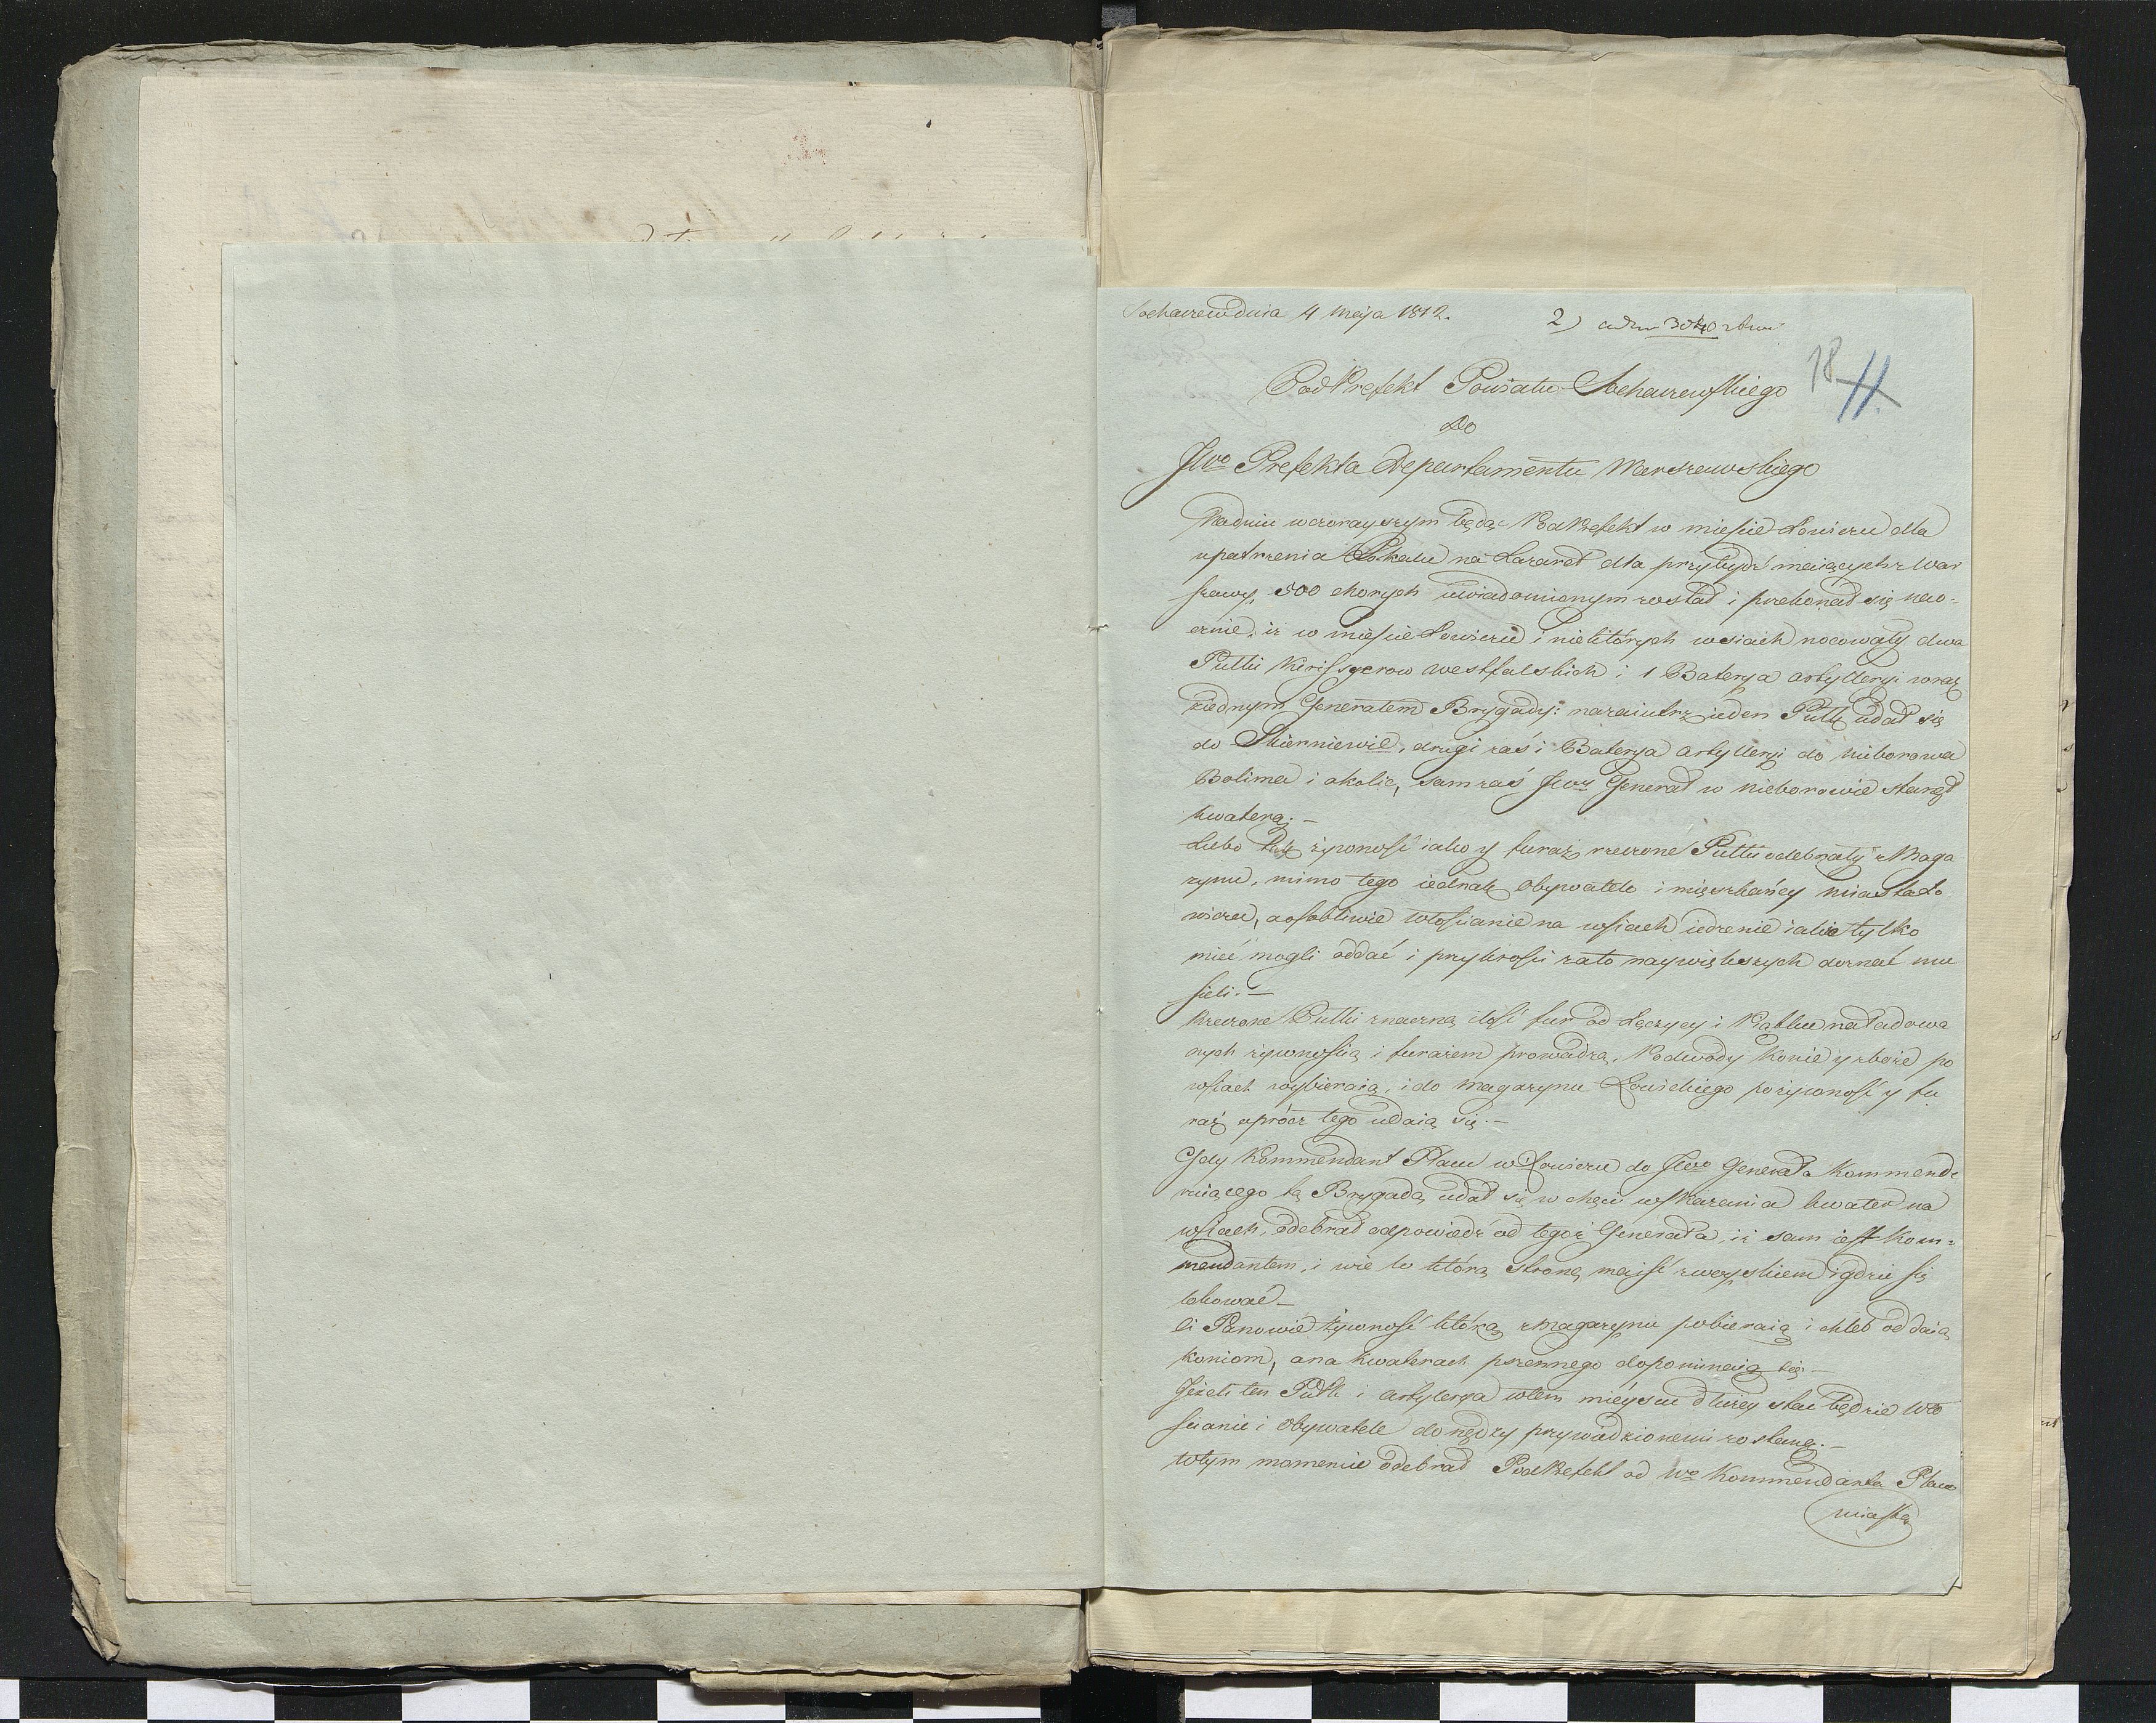 Sochaczew dnia 4 Maja 1812.
2)
18 11.
PodPrefekt Powiatu Sochaczewskiego
Do
JWo Prefekta Departamentu Warszawskiego
Wdniu wczorayszym będąc PodPrefekt w mieście Łowiczu dla
upatrzenia Lokalu na Lazaret dla przybydź maiących z War
szawy, 500 chorych uwiadomionym został i przekonał się nao-
cznie, iż w mieście Łowiczu i niektórych wsiach nocowały dwa
Pułki Kirissyerow westfalskich i 1 Baterya artylleryi wraz
ziednym Generałem Brygady: nazaiutrz ieden Pułk udał się
do Skierniewic, drugi zaś i Baterya Artylleryi do Nieborowa
Bolimea i okolic, sam zaś JWy Generał w Nieborowie stanął
kwaterą. —
Lubo tak żywność iako y furaż rzeczone Pułki odebrały z Maga
zynu, mimo tego iednak Obywatele i mięszkańcy miasta Ło
wicza, a osobliwie Włościanie na wsiach iedzenie iakie tylko
mieć mogli oddać i przykrości zato naywiększych doznać mu
sieli. —
Rzeczone Pułki znaczną ilość fur od Łęczycy i Piątku naładowa
nych żywnością i furażem prowadzą, Podwody Konie y zboże po
wsiach wybieraią, i do magazynu Łowickiego po żywność y fu
raż oprócz tego udaią się. —
Gdy Kommendant Placu w Łowiczu do JWo Generała Kommende
ruiącego tą Brygadą udał się w chęci wskazania kwater na
wsiach, odebrał odpowiedź od tegoż Generała, iż sam iest Kom-
mendantem, i wie w którą stronę maiść zwoyskiem i gdzie się
lokować —
Ci Panowie żywność którą z Magazynu pobieraią i chleb oddaią
Koniom, a na kwaterach pszennego dopominaią się —
Jeżeli ten Pułk i artylerya wtem mieyscu dłużey stać będzie Wło
ścianie i Obywatele do nędzy przywiedzionemi zostaną. —
Wtym momencie odebrał PodPrefekt od Wo Kommendanta Placu
miasta